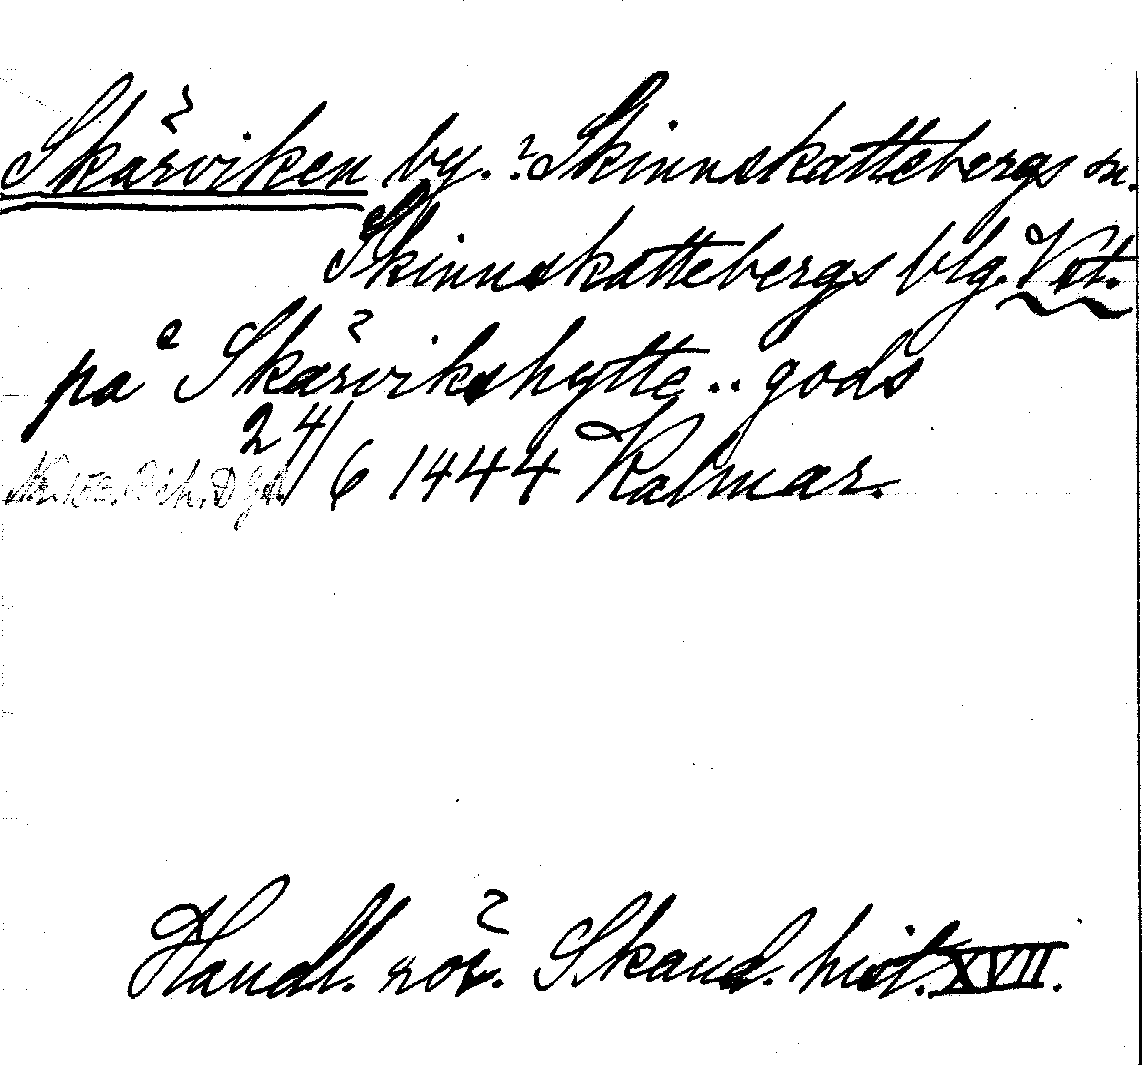 Skärviken by. ? Skinnskattebergs sn.
Skinnskattebergs blg. Vst.
pa Skärvikshytte .. gods
24/6 1444 Kalmar.
Handl. rör. Skand. hist. XVII.